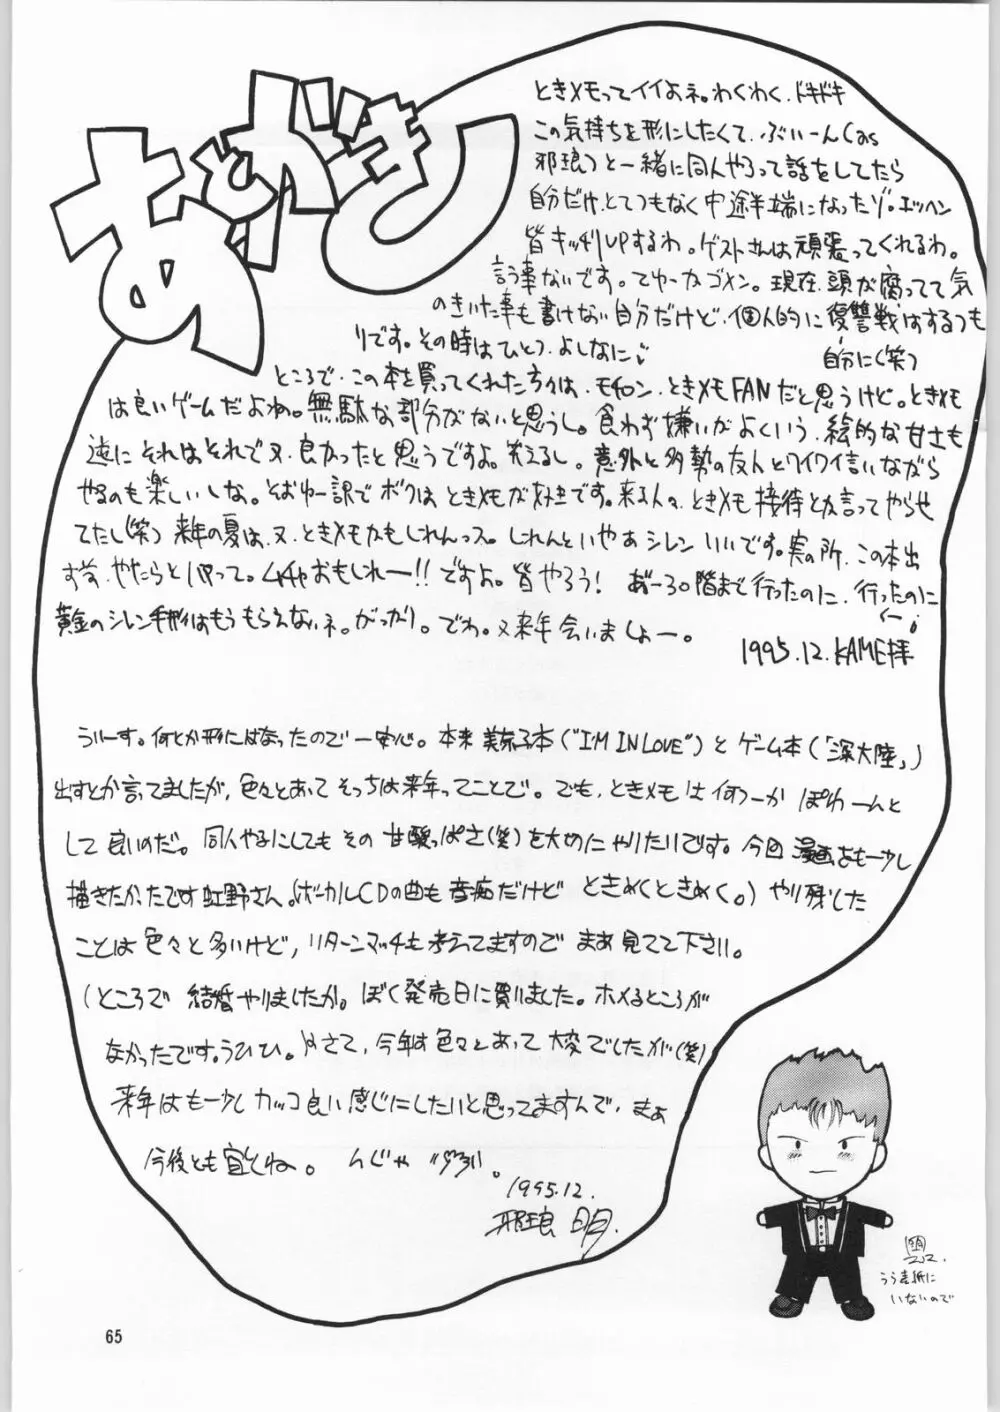 あとがき
ときメモってイイよネ。わくわく、ドキドキ
この気持ちを形にしたくて、ぶぃーん(as
邪琅)と一緒に同人やろって話をしてたら
自分だけ、とてつもなく中途半端になったゾ。エッヘン
皆キッチリUPするわ。ゲストさんは頑張ってくれるわ。
言う事ないです。てゆーかゴメン。現在、頭が腐ってて気
のきいた事も書けない自分だけど、個人的に復讐戦はするつも
自分に(笑)
りです。その時はひとつ、よしなに
ところで、この本を買ってくれた方々は、モチロン、ときメモFANだと思うけど。ときメモ
は良いゲームだよね。無駄な部分がないと思うし。食わず嫌いがよくいう、絵的な甘さも
逆にそれはそれで又、良かったと思うですよ。笑えるし。意外と多勢の友人とワイワイ言いながら
やるのも楽しいしな。そおゆー訳でボクはときメモが好きです。来る人々、ときメモ接待とか言ってやらせ
てたし(笑) 来年の夏は、又、ときメモかもしれんっス。しれんといやぁシレンいいです。実の所、この本出
す前、やたらとハマって。ムチャおもしれー!!ですよ。皆やろう! あ゛ーっ30階まで行ったのに、行ったのに
黄金のシレン手形はもうもらえないネ。がっかり。でわ。又来年会いましょー。
1995.12.KAME拝
ういーす。何とか形にはなったので一安心。本来 美奈子本("I'M IN LOVE")と ゲーム本(「深大陸」)
出すとか言ってましたが、色々とあって そっちは来年ってことで。でも、ときメモは 何つーか ぽわーんと
して良いのだ。同人やるにしても その 甘酸っぱさ(笑)を大切にやりたいです。今回 漫画をも一少し
描きたかったです虹野さん。(ボーカルCDの曲も 音痴だけど ときめくときめく。)やり残した
ことは色々と多いけど、リターンマッチも考えてますので まあ見てて下さい。
(ところで 結婚やりましたか。ぼく発売日に買いました。ホメるところが
なかったです。うひひ。)さて、今年は色々とあって大変でしたが(笑)
来年はも一少しカッコ良い感じにしたいと思ってますんで、まぁ
今後とも宜しくね。 んじゃ
1995.12.
邪琅 明
うら表紙に
いないので
65